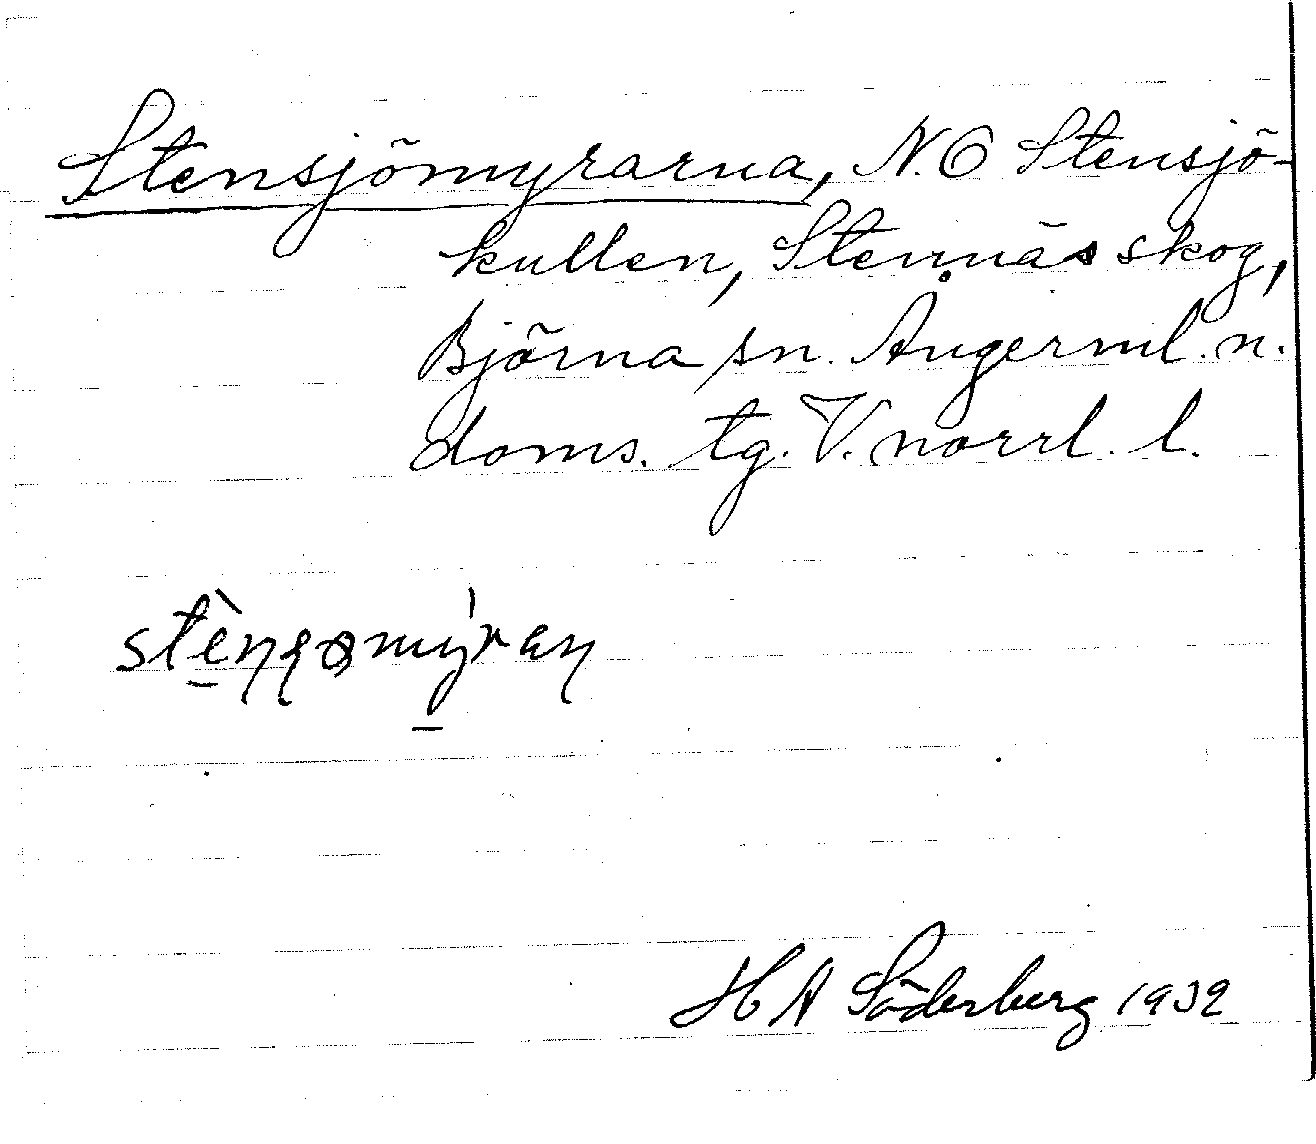 Stensjömyrarna, N.O Stensjö-
kullen, Stennäs skog,
Björna sn. Ångerml. n.
doms. tg. V. norrl. l.
H A Söderberg 1932